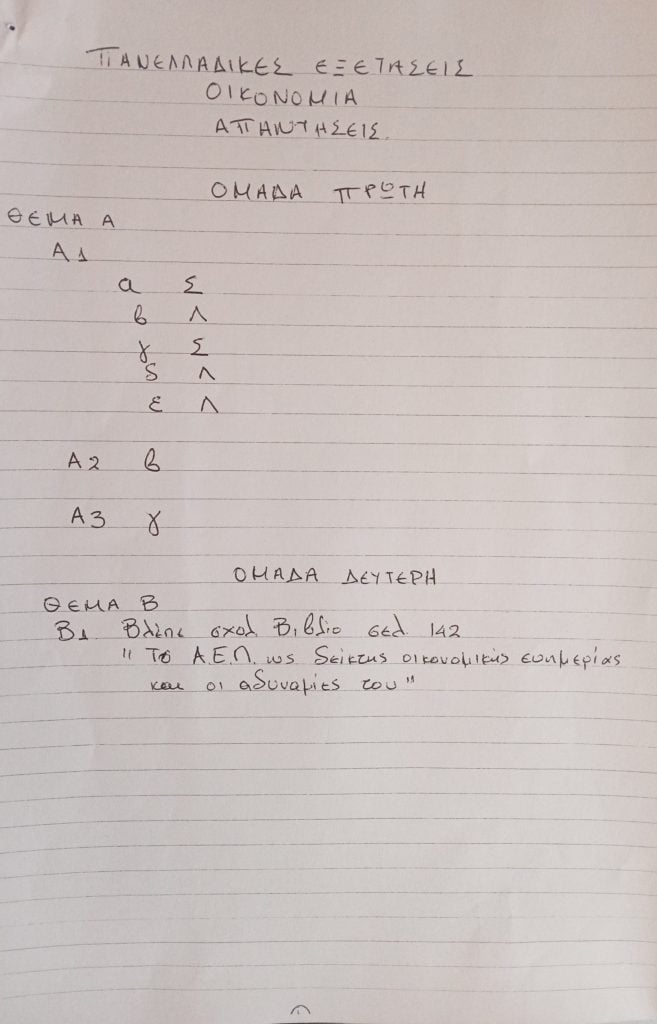 ΠΑΝΕΛΛΑΔΙΚΕΣ ΕΞΕΤΑΣΕΙΣ
ΟΙΚΟΝΟΜΙΑ
ΑΠΑΝΤΗΣΕΙΣ.
ΟΜΑΔΑ ΠΡΩΤΗ
ΘΕΜΑ Α
Α1
α Σ
β Λ
γ Σ
δ Λ
ε Λ
Α2 β
Α3 γ
ΟΜΑΔΑ ΔΕΥΤΕΡΗ
ΘΕΜΑ Β
Β1 Βλέπε σχολ. Βιβλίο σελ. 142
"Το Α.Ε.Π. ως δείκτης οικονομικής ευημερίας
και οι αδυναμίες του"